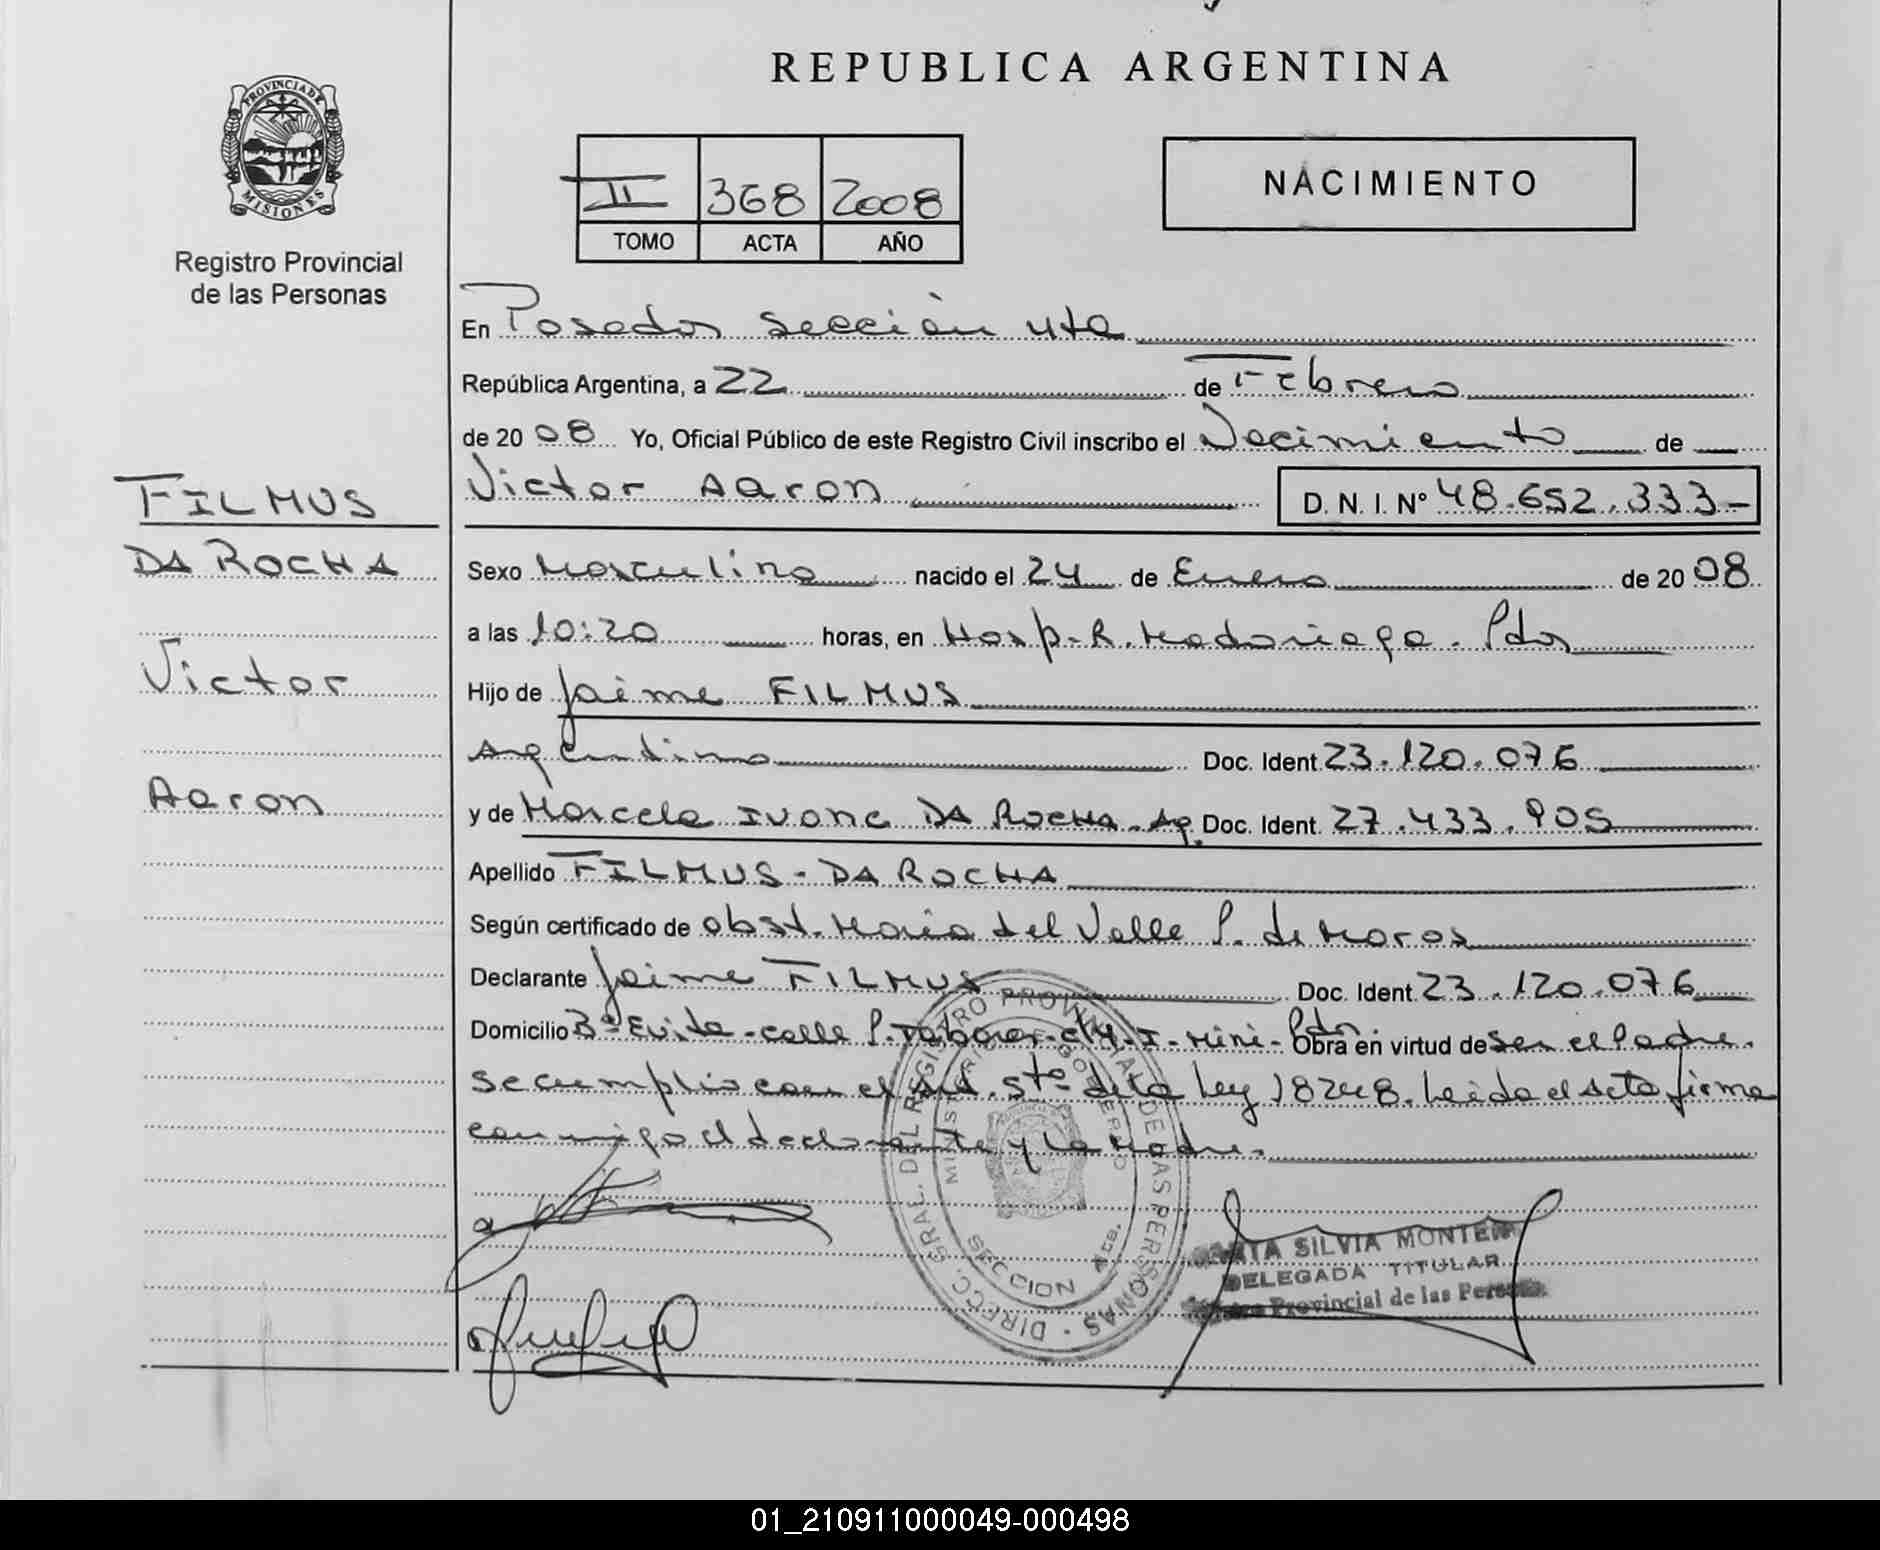 REPUBLICA ARGENTINA
PROVINCIA DE MISIONES
Registro Provincial
de las Personas
II 368 2008
TOMO ACTA AÑO
NACIMIENTO
En Posadas sección 4ta
República Argentina, a 22 de Febrero
de 20 08 Yo, Oficial Público de este Registro Civil inscribo el Nacimiento de
Victor Aaron D. N. I. Nº 48.652.333-
FILMUS
DA ROCHA
Victor
Aaron
Sexo Masculino nacido el 24 de Enero de 20 08
a las 10:20 horas, en Hosp. R. Madariaga. Pdas
Hijo de Jaime FILMUS
Argentino Doc. Ident. 23.120.076
y de Marcela Ivone DA ROCHA. Ag. Doc. Ident. 27.433.905
Apellido FILMUS - DA ROCHA
Según certificado de obst. María del Valle P. de Moros
Declarante Jaime FILMUS Doc. Ident. 23.120.076
Domicilio Bº Evita - calle P. I - Mini - Pdas. Obra en virtud de ser el Padre.
se cumplio con el art. 5to de la Ley 18248. Leída el acta firma
conmigo el declarante y la Madre.
DIRECC. GRAL. DEL REGISTRO PROVINCIAL DE LAS PERSONAS
MINISTERIO DE GOBIERNO
SECCION 4ta.
SILVIA
DELEGADA TITULAR
Provincial de las Personas
01_210911000049-000498